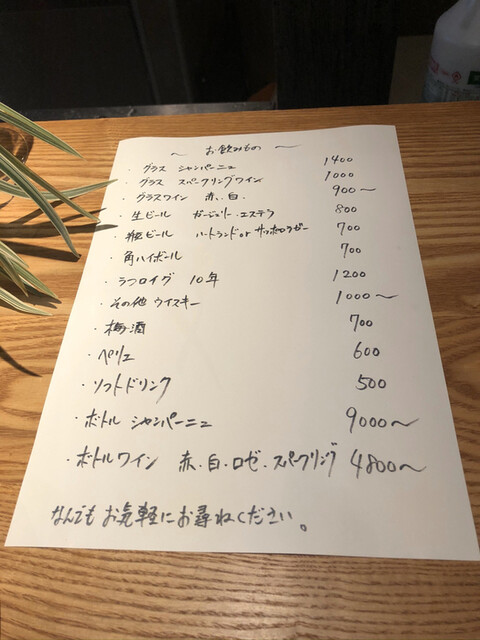 ～ お飲みもの ～
・グラス シャンパーニュ 1400
・グラス スパークリングワイン 1000
・グラスワイン 赤、白. 900～
・生ビール ガージェリー・エステラ 800
・瓶ビール ハートランド or サッポロラガー 700
・角ハイボール 700
・ラフロイグ 10年 1200
・その他 ウイスキー 1000～
・梅酒 700
・ペリエ 600
・ソフトドリンク 500
・ボトル シャンパーニュ 9000～
・ボトルワイン 赤・白・ロゼ・スパークリング 4800～
なんでもお気軽にお尋ねください。